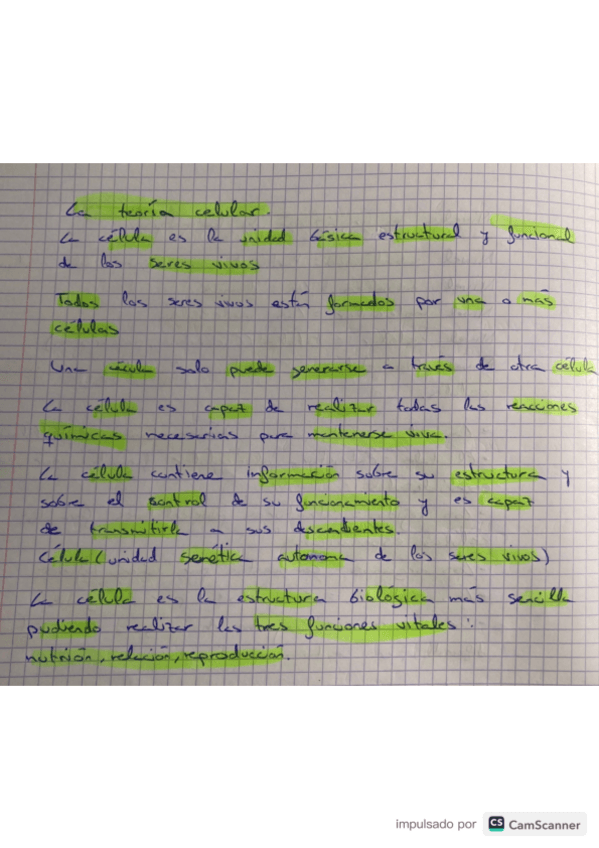 La teoría celular.
La célula es la unidad básica estructural y funcional
de los seres vivos
Todos los seres vivos están formados por una o más
células
Una célula solo puede generarse a través de otra célula
La célula es capaz de realizar todas las reacciones
químicas necesarias para mantenerse viva.
La célula contiene información sobre su estructura y
sobre el control de su funcionamiento y es capaz
de transmitirla a sus descendientes.
Célula (unidad genética autonoma de los seres vivos)
La célula es la estructura biológica más sencilla
pudiendo realizar las tres funciones vitales :
nutrición, relación, reproducción.
impulsado por CS CamScanner